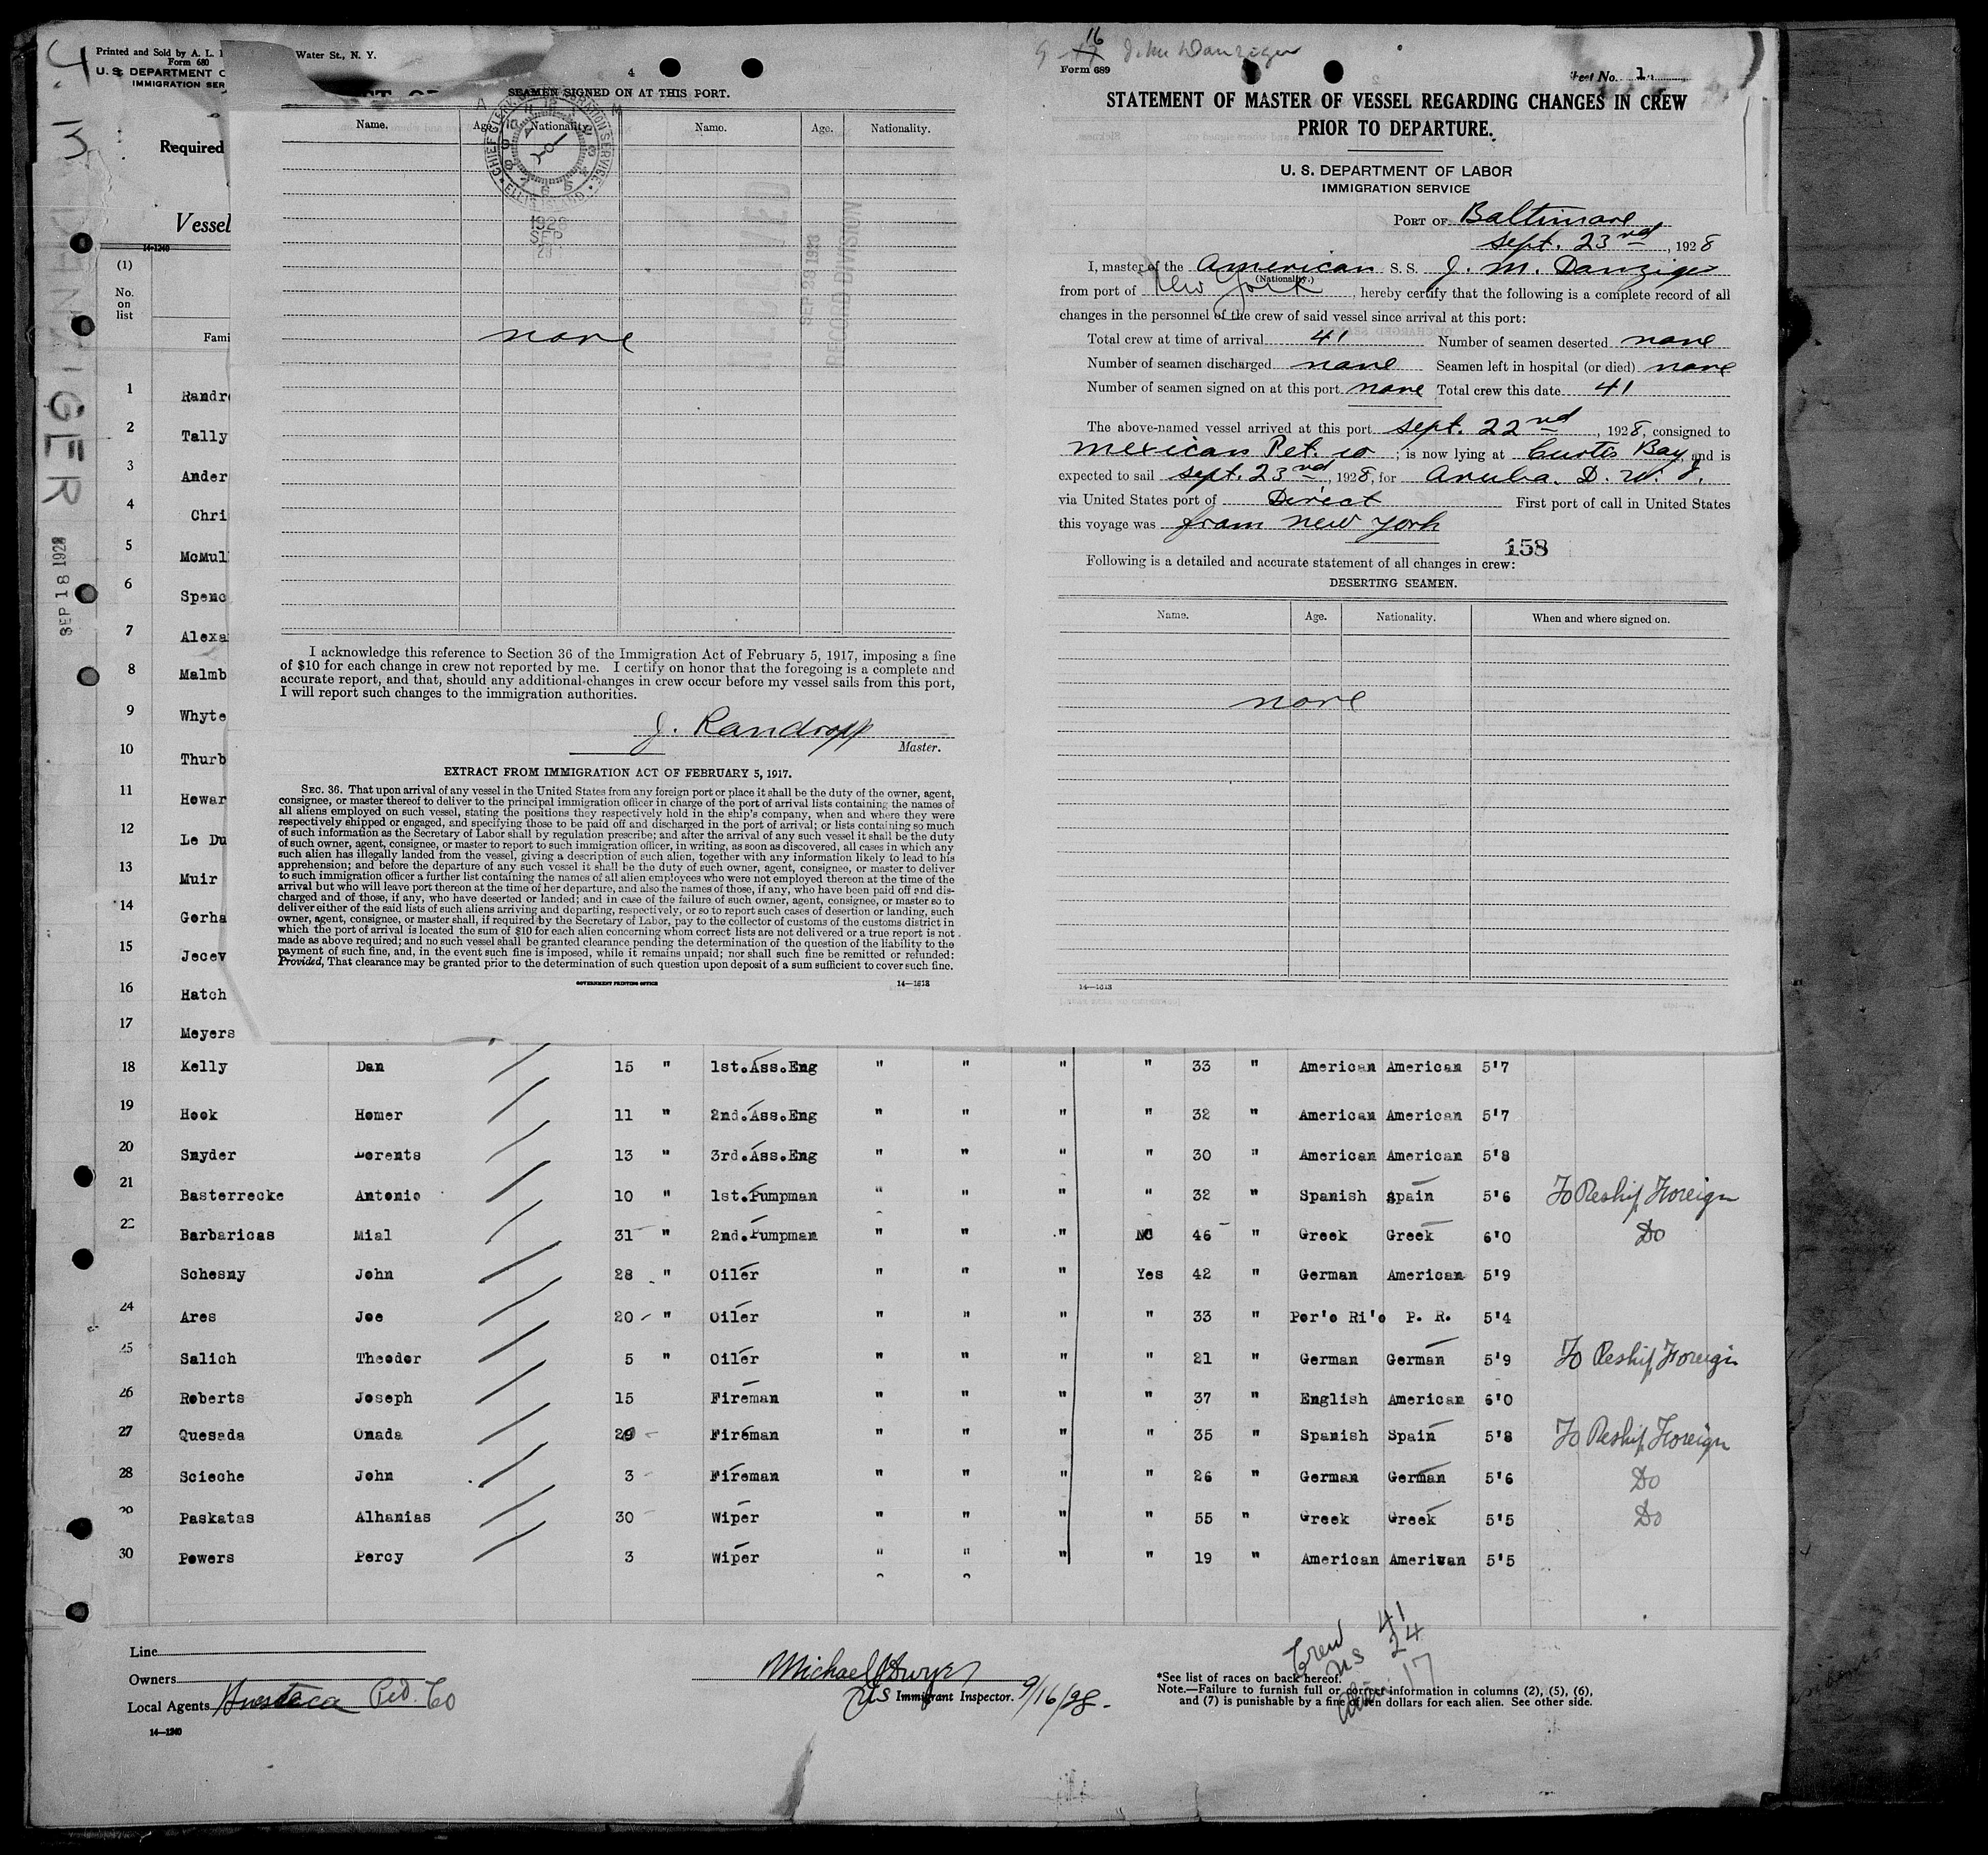 Printed and Sold by A. L.
Form 680
U. S. DEPARTMENT O
IMMIGRATION SER
Required
Vessel
14-1240
(1)
No.
on
list
Fami
SEP 18 1928
1 Randr
2 Tally
3 Ander
4 Chri
5 McMul
6 Spenc
7 Alexa
8 Malmb
9 Whyte
10 Thurb
11 Howar
12 Le Du
13 Muir
14 Gorha
15 Jecev
16 Hatch
17 Meyers
Water St., N. Y.
4
SEAMEN SIGNED ON AT THIS PORT.
Name. Age. Nationality. Name. Age. Nationality.
CHIEF CLERK, U.S. IMMIGRATION SERVICE
ELLIS ISLAND
1928
SEP
SEP 29 1928
RECORD DIVISION
none
I acknowledge this reference to Section 36 of the Immigration Act of February 5, 1917, imposing a fine
of $10 for each change in crew not reported by me. I certify on honor that the foregoing is a complete and
accurate report, and that, should any additional changes in crew occur before my vessel sails from this port,
I will report such changes to the immigration authorities.
J. Randropp
Master.
EXTRACT FROM IMMIGRATION ACT OF FEBRUARY 5, 1917.
SEC. 36. That upon arrival of any vessel in the United States from any foreign port or place it shall be the duty of the owner, agent,
consignee, or master thereof to deliver to the principal immigration officer in charge of the port of arrival lists containing the names of
all aliens employed on such vessel, stating the positions they respectively hold in the ship's company, when and where they were
respectively shipped or engaged, and specifying those to be paid off and discharged in the port of arrival; or lists containing so much
of such information as the Secretary of Labor shall by regulation prescribe; and after the arrival of any such vessel it shall be the duty
of such owner, agent, consignee, or master to report to such immigration officer, in writing, as soon as discovered, all cases in which any
such alien has illegally landed from the vessel, giving a description of such alien, together with any information likely to lead to his
apprehension; and before the departure of any such vessel it shall be the duty of such owner, agent, consignee, or master to deliver
to such immigration officer a further list containing the names of all alien employees who were not employed thereon at the time of the
arrival but who will leave port thereon at the time of her departure, and also the names of those, if any, who have been paid off and dis-
charged and of those, if any, who have deserted or landed; and in case of the failure of such owner, agent, consignee, or master so to
deliver either of the said lists of such aliens arriving and departing, respectively, or so to report such cases of desertion or landing, such
owner, agent, consignee, or master shall, if required by the Secretary of Labor, pay to the collector of customs of the customs district in
which the port of arrival is located the sum of $10 for each alien concerning whom correct lists are not delivered or a true report is not
made as above required; and no such vessel shall be granted clearance pending the determination of the question of the liability to the
payment of such fine, and, in the event such fine is imposed, while it remains unpaid; nor shall such fine be remitted or refunded:
Provided, That clearance may be granted prior to the determination of such question upon deposit of a sum sufficient to cover such fine.
GOVERNMENT PRINTING OFFICE 14—1613
16
John Danziger
Form 689
Sheet No. 1
STATEMENT OF MASTER OF VESSEL REGARDING CHANGES IN CREW
PRIOR TO DEPARTURE.
U. S. DEPARTMENT OF LABOR
IMMIGRATION SERVICE
PORT OF Baltimore
Sept. 23nd, 1928
I, master of the American S. S. J. M. Danziger
(Nationality.)
from port of New York, hereby certify that the following is a complete record of all
changes in the personnel of the crew of said vessel since arrival at this port:
Total crew at time of arrival 41 Number of seamen deserted none
Number of seamen discharged none Seamen left in hospital (or died) none
Number of seamen signed on at this port none Total crew this date 41
The above-named vessel arrived at this port Sept. 22nd, 1928, consigned to
Mexican Pet. co; is now lying at Curtis Bay, and is
expected to sail Sept. 23nd, 1928, for Aruba. D. W. I.
via United States port of Direct First port of call in United States
this voyage was from New York
158
Following is a detailed and accurate statement of all changes in crew:
DESERTING SEAMEN.
Name. Age. Nationality. When and where signed on.
none
14—1613
18 Kelly Dan 15 " 1st.Ass.Eng " " " " 33 " American American 5'7
19 Hook Homer 11 " 2nd.Ass.Eng " " " " 32 " American American 5'7
20 Snyder Lorents 13 " 3rd.Ass.Eng " " " " 30 " American American 5'8
21 Basterrecke Antonio 10 " 1st.Pumpman " " " " 32 " Spanish Spain 5'6 To Reship Foreign
22 Barbaricas Mial 31 " 2nd.Pumpman " " " NO 46 " Greek Greek 6'0 Do
Schesny John 28 " Oiler " " " Yes 42 " German American 5'9
24 Ares Joe 20 " Oiler " " " " 33 " Por'o Ri'o P. R. 5'4
25 Salich Theodor 5 " Oiler " " " " 21 " German German 5'9 To Reship Foreign
26 Roberts Joseph 15 Fireman " " " 37 " English American 6'0
27 Quesada Onada 29 Fireman " " " " 35 " Spanish Spain 5'8 To Reship Foreign
28 Scieche John 3 Fireman " " " " 26 " German German 5'6 Do
29 Paskatas Alhanias 30 Wiper " " " " 55 " Greek Greek 5'5 Do
30 Powers Percy 3 Wiper " " " " 19 " American Amerivan 5'5
Crew 41
US 24
Alien 17
Line
Owners
Local Agents Huasteca Pet. Co
14—1240
Michael Dwyer
US Immigrant Inspector. 9/16/28.
*See list of races on back hereof.
Note.—Failure to furnish full or correct information in columns (2), (5), (6),
and (7) is punishable by a fine of ten dollars for each alien. See other side.